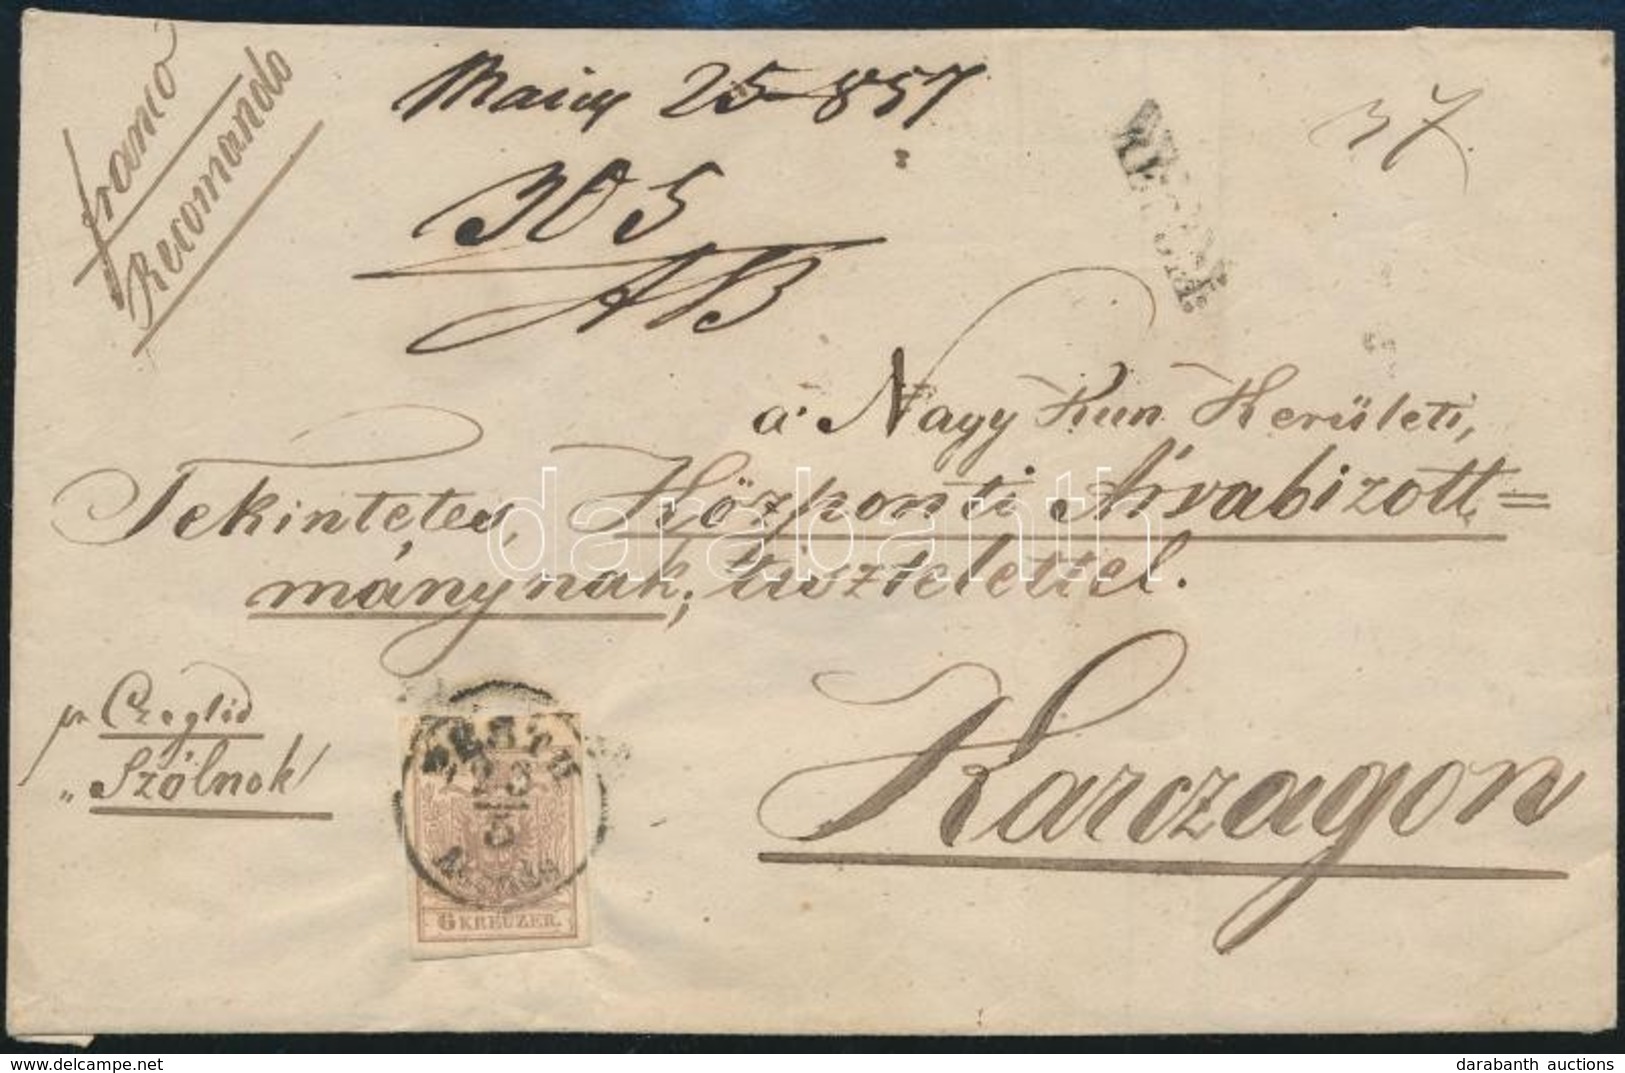 franco
Recomando
25 857
305
AB
37
RECOM.
a' Nagy Kun Kerületi,
Tekintetes, Központi Árvabizott=
mánynak, tisztelettel.
Karczagon
pr Czegléd
„ Szólnok
PESTH
23
5
Abends
6 KREUZER.
darabanth
darabanth auctions